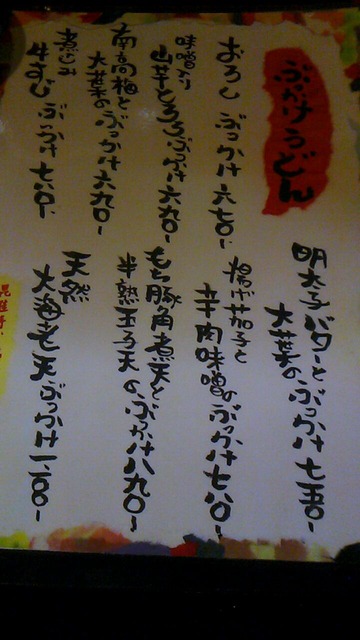 ぶっかけうどん
おろしぶっかけ六七〇-
味噌入り
山芋とろろぶっかけ六九〇-
南高梅と
大葉のぶっかけ六九〇-
煮込み
牛すじぶっかけ七八〇-
明太子バターと
大葉のぶっかけ七五〇-
揚げ茄子と
辛肉味噌のぶっかけ七八〇-
もち豚角煮天と
半熟玉子天のぶっかけ八九〇-
天然
大海老天ぶっかけ一二〇〇-